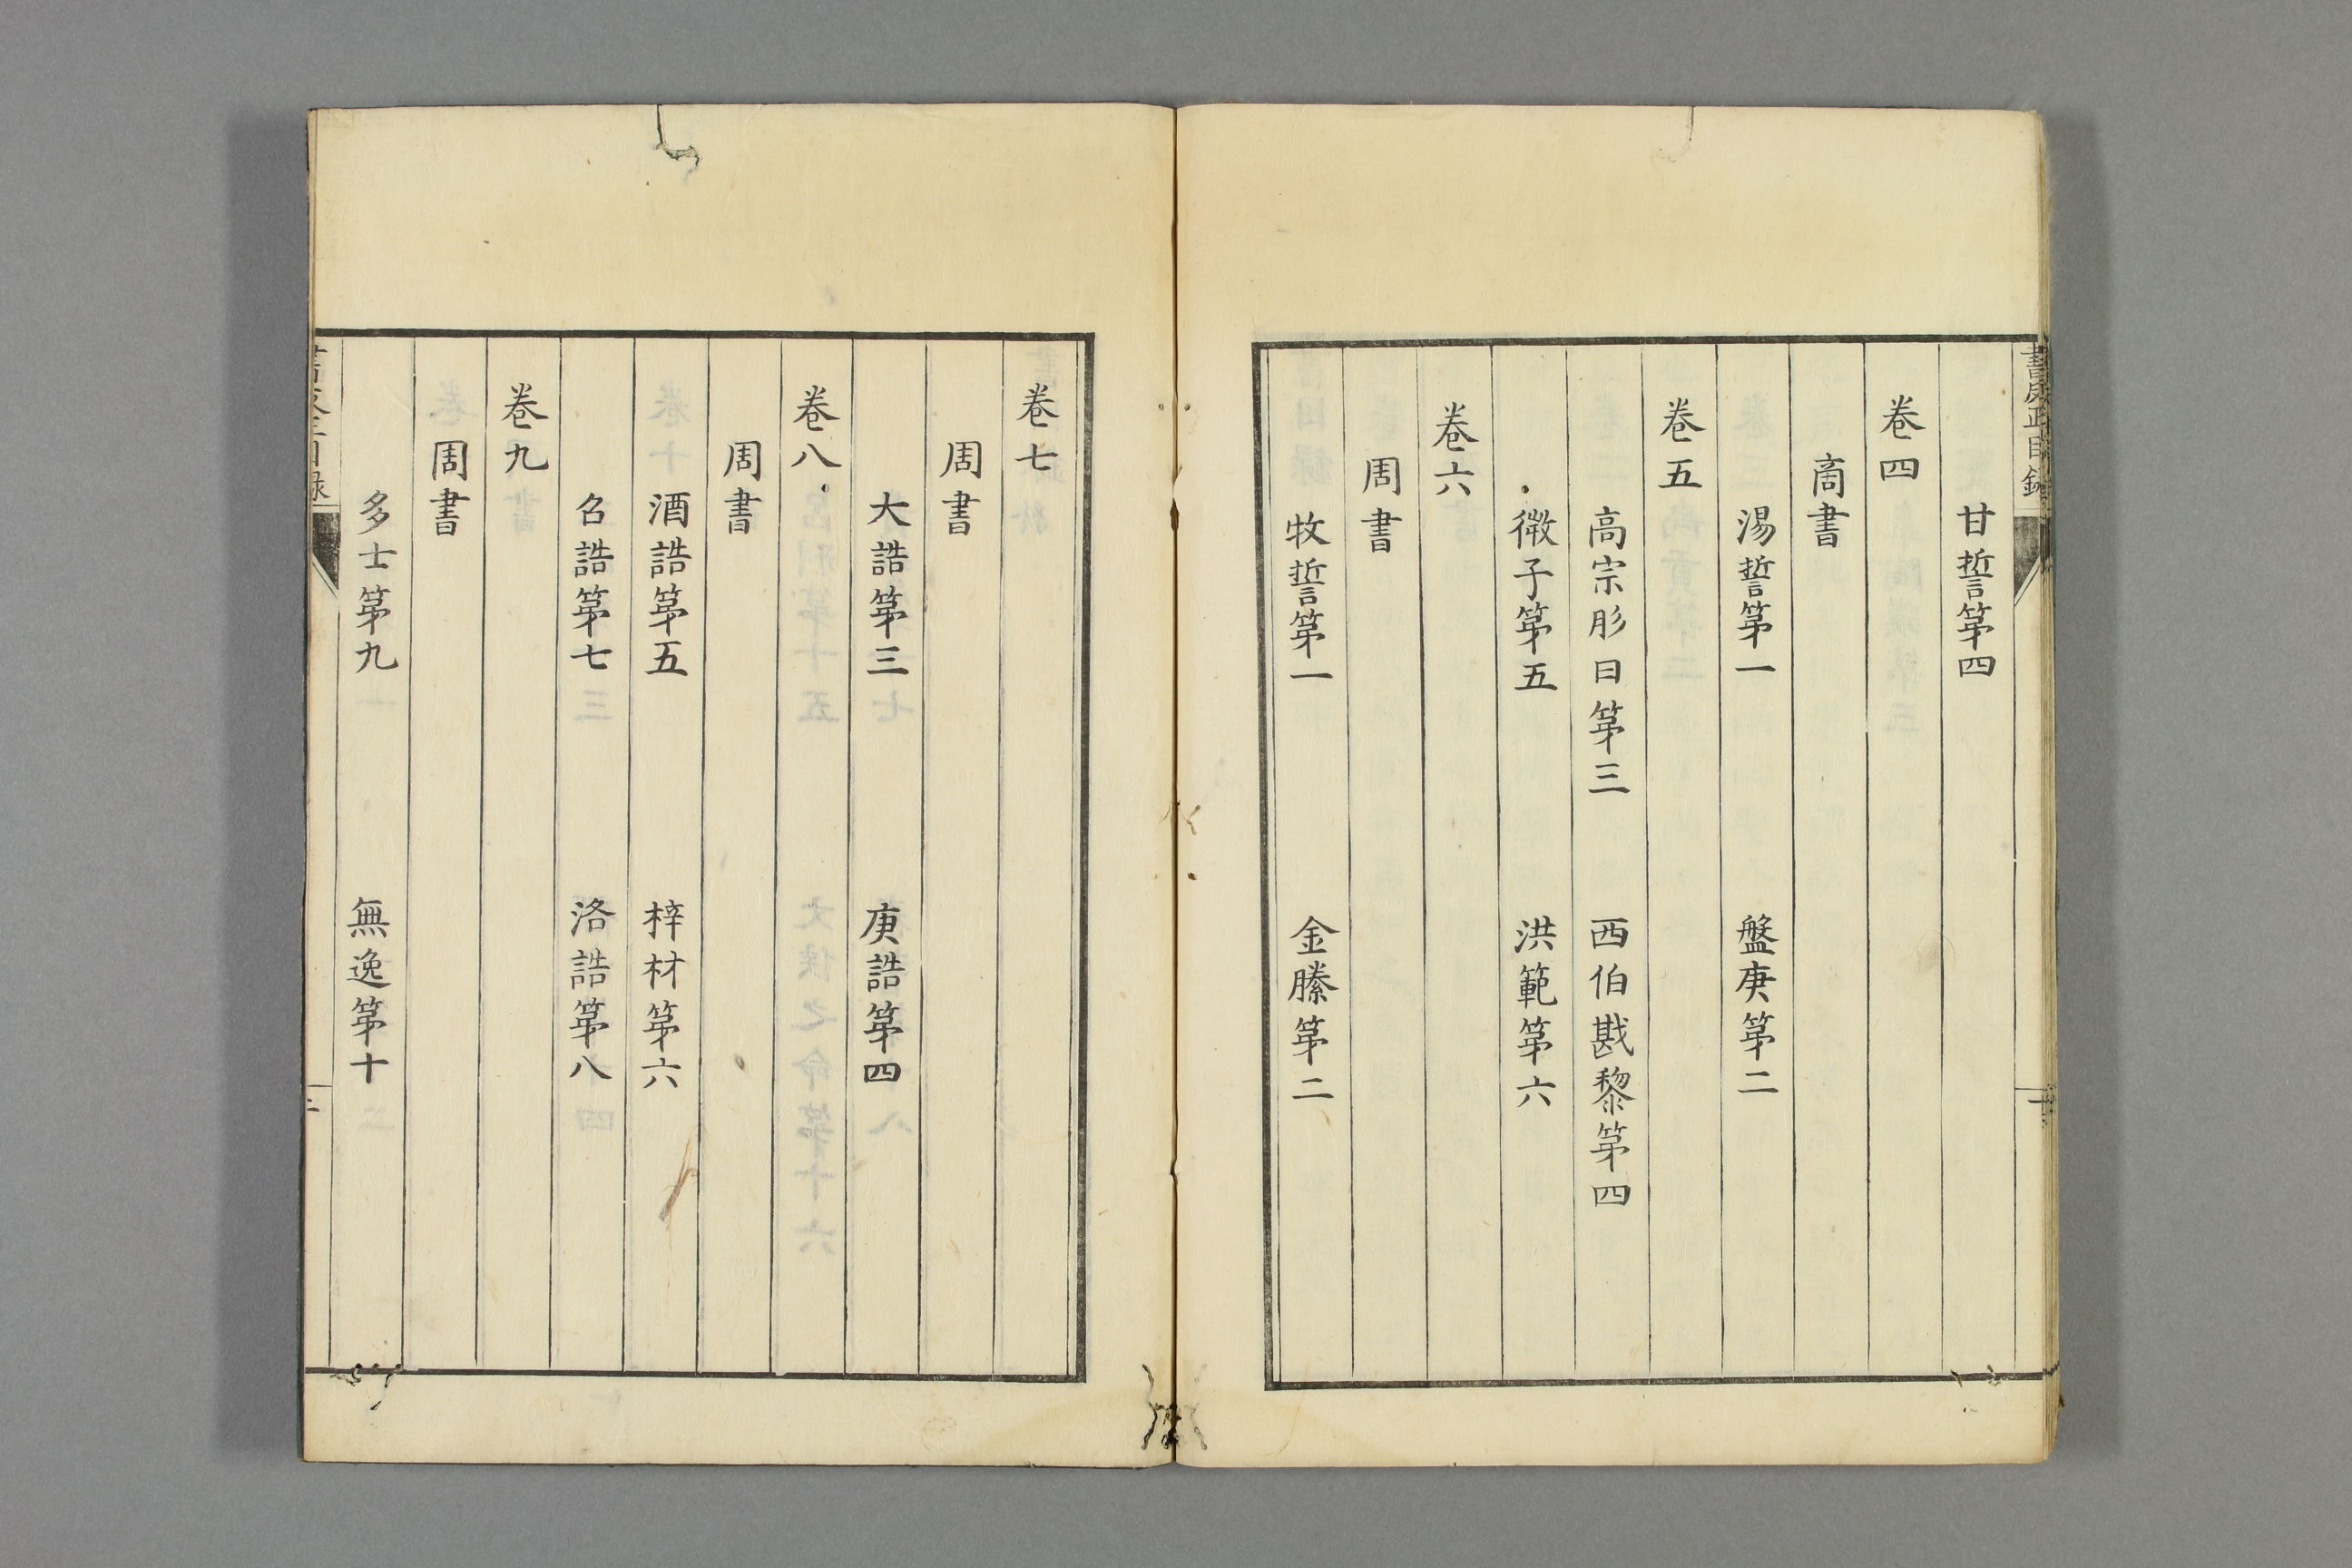 書正目錄
甘誓第四
卷四
商書
湯誓第一　盤庚第二
卷五
高宗肜日第三　西伯戡黎第四
微子第五　洪範第六
卷六
周書
牧誓第一　金縢第二
卷七
周書
大誥第三　庚誥第四
卷八
周書
酒誥第五　梓材第六
召誥第七　洛誥第八
卷九
周書
多士第九　無逸第十